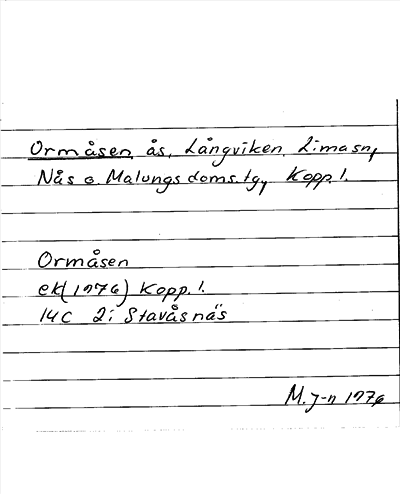 Ormåsen, ås, Långviken, Lima sn,
Nås o. Malungs doms.tg, Kopp. l.
Ormåsen
ek(1976) Kopp. l.
14C 2i Stavåsnäs
M. J-n 1976